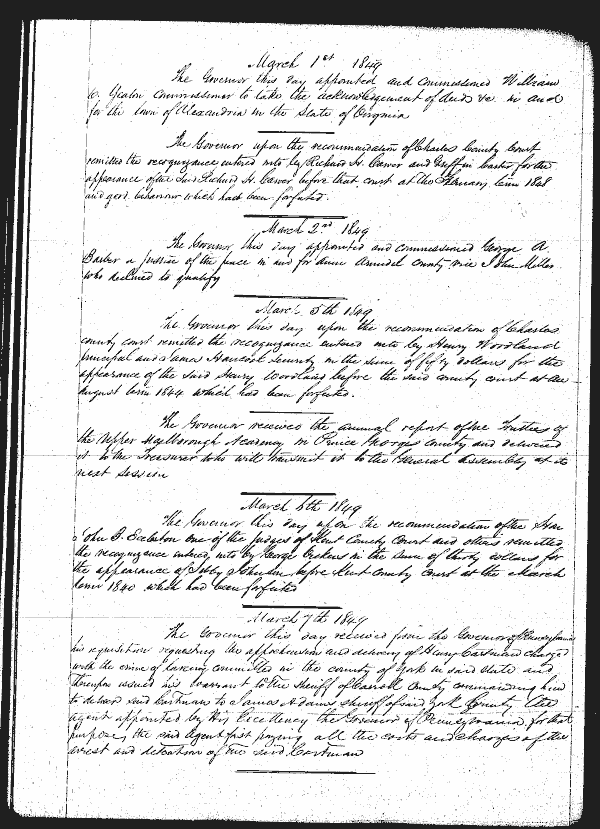 March 1st 1849
The Governor this day appointed and commissioned William
Yeaton commissioner to take the acknowledgement of deeds &c in and
for the town of Alexandria in the State of Virginia
The Governor upon the recommendation of Charles County Court
remitted the recognizance entered into by Richard H. Carver and Griffin Carter for the
appearance of the said Richard H. Carver before that court at the February term 1848
and good behaviour which had been forfeited.
March 2nd 1849
The Governor this day appointed and commissioned George A.
Barber a justice of the peace in and for Anne Arundel County vice John Miller
who declined to qualify
March 5th 1849
The Governor this day upon the recommendation of Charles
county court remitted the recognizance entered into by Henry Woodland
principal and James Hancock security in the sum of fifty dollars for the
appearance of the said Henry Woodland before the said county court at the
August term 1844 which had been forfeited.
The Governor received the annual report of the Trustees of
the Upper Marlborough Academy in Prince Georges County and delivered
it to the Treasurer who will transmit it to the General Assembly at its
next session
March 6th 1849
The Governor this day upon the recommendation of the Hon
John B. Eccleston one of the judges of Kent County Court and others remitted
the recognizance entered into by George in the sum of thirty dollars for
the appearance of Johnson before Kent County Court at the March
term 1840 which had been forfeited
March 7th 1849
The Governor this day received from the Governor of Pennsylvania
his requisition requesting the apprehension and delivery of Henry Eastman charged
with the crime of larceny committed in the county of York in said state and
thereupon issued his warrant to the Sheriff of Carroll County commanding him
to deliver said Eastman to James Adams sheriff of said York County the
agent appointed by His Excellency the Governor of Pennsylvania for that
purpose, the said Agent first paying all the costs and charges of the
arrest and detention of the said Eastman